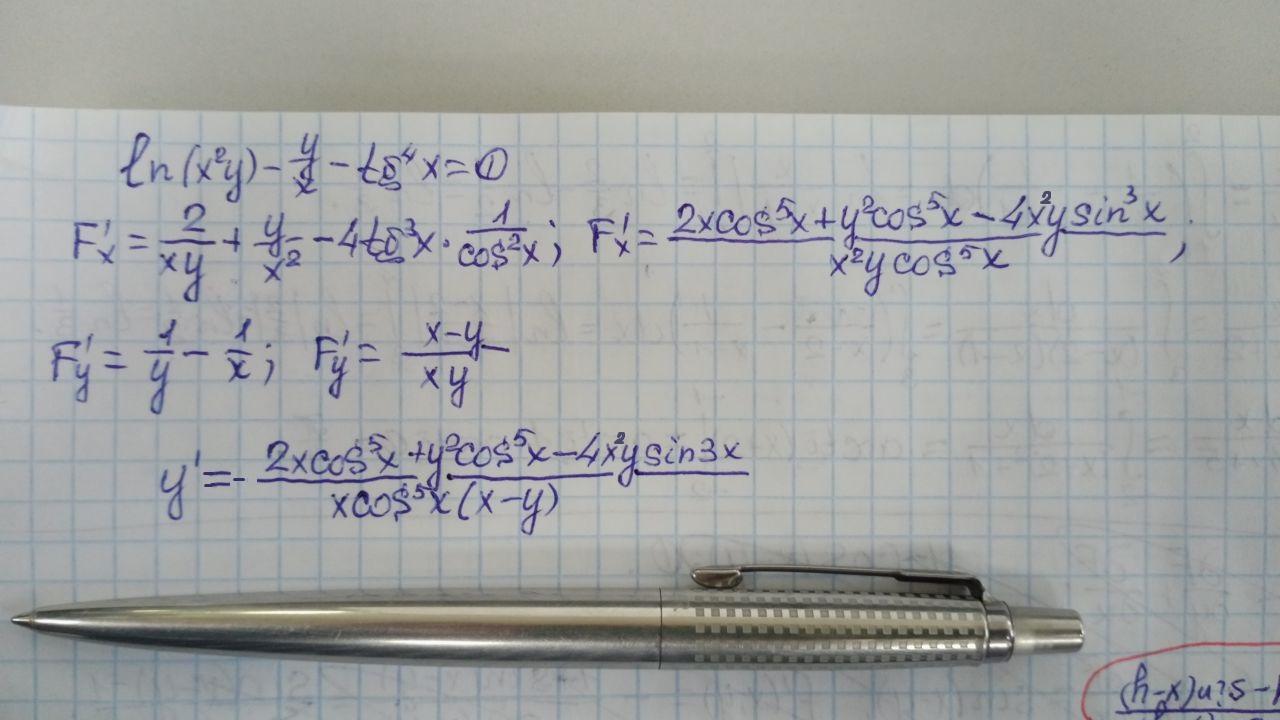 ln(x²y) - y/x - tg⁴x = 0
F'ₓ = 2/(xy) + y/x² - 4tg³x · 1/cos²x; F'ₓ = (2xcos⁵x + y²cos⁵x - 4x²ysin³x)/(x²ycos⁵x);
F'y = 1/y - 1/x; F'y = (x-y)/(xy)
y' = - (2xcos⁵x + y²cos⁵x - 4x²ysin3x)/(xcos⁵x(x-y))